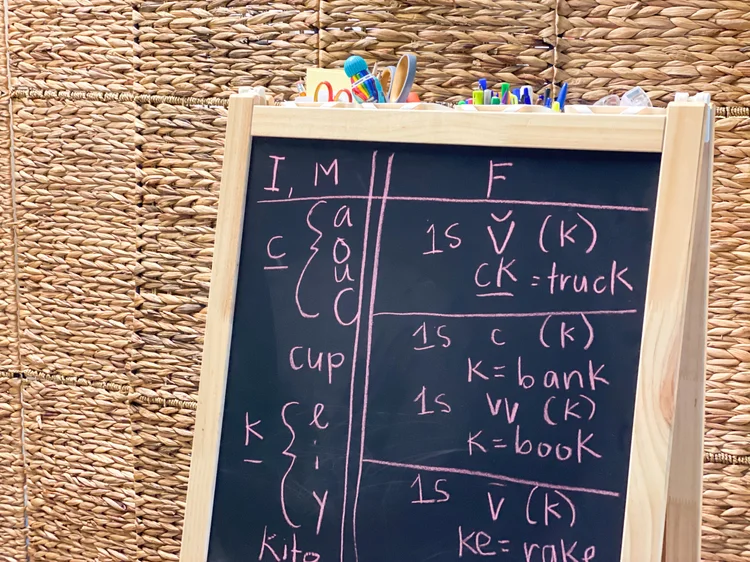 I, M
c { a
o
u
C
cup
k { e
i
y
kite
F
1s v̆ (k)
ck = truck
1s c (k)
k = bank
1s vv (k)
k = book
1s v̄ (k)
ke = rake